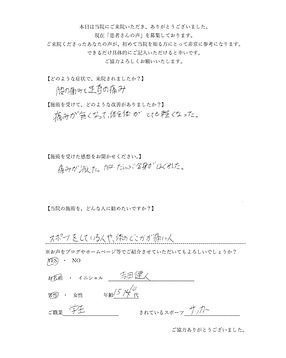 本日は当院にご来院いただき、ありがとうございました。
現在「患者さんの声」を募集しております。
ご来院くださったあなたの声が、初めて当院を知る方にとって非常に参考になります。
できるだけ具体的にご記入いただけると幸いです。
ご協力よろしくお願いいたします。
【どのような症状で、来院されましたか？】
腰の痛みと足首の痛み
【施術を受けて、どのような改善がありましたか？】
痛みが無くなって、体全体がとても軽くなった。
【施術を受けた感想をお聞かせください。】
痛みが消えた。
【当院の施術を、どんな人に勧めたいですか？】
スポーツをしている人や、体のどこかが痛い人
※お声をブログやホームページ等でご紹介させていただいてもよろしいでしょうか？
YES ・ NO
お名前 ・ イニシャル 吉田健人
男性 ・ 女性 年齢 15 代
ご職業 学生 されているスポーツ サッカー
ご協力ありがとうございました。